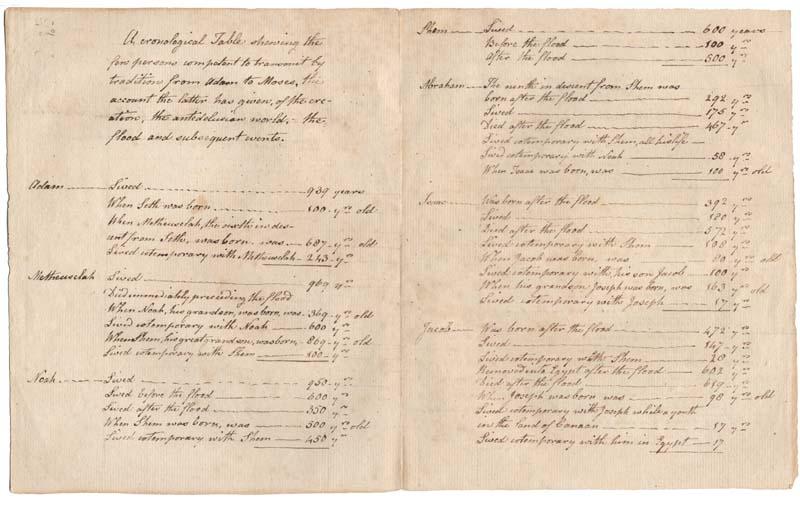 A cronological Table shewing the
few persons competent to transmit by
tradition from Adam to Moses, the
account the latter has given, of the cre-
ation, the antedeluvian world, - the
flood and subsequent events.
Adam — Lived — 939 years
When Seth was born — 130 yrs old
When Metheuselah, the sixth in des-
cent from Seth, was born, was — 687 yrs old
Lived cotemporary with Metheuselah — 243 yrs
Metheuselah Lived — 969 yrs
Died immediately preceding the flood
When Noah, his grandson, was born, was 369 yrs old
Lived cotemporary with Noah — 600 yrs
When Shem, his great grandson, was born, 869 yrs old
Lived cotemporary with Shem — 100 yrs
Noah — Lived — 950 yrs
Lived before the flood — 600 yrs
Lived after the flood — 350 yrs
When Shem was born, was — 500 yrs old
Lived cotemporary with Shem — 450 yrs
Shem — Lived — 600 years
Before the flood — 100 yrs
After the flood — 500 yrs
Abraham — The ninth in descent from Shem was
born after the flood — 292 yrs
Lived — 175 yrs
Died after the flood — 467 yrs
Lived cotemporary with Shem, all his life —
Lived cotemporary with Noah — 58 yrs
When Isaac was born, was — 100 yrs old
Isaac — Was born after the flood — 392 yrs
Lived — 180 yrs
Died after the flood — 572 yrs
Lived cotemporary with Shem — 108 yrs
When Jacob was born, was — 80 yrs old
Lived cotemporary with, his son Jacob — 100 yrs
When his grandson Joseph was born, was 163 yrs old
Lived cotemporary with Joseph — 17 yrs
Jacob — Was born after the flood — 472 yrs
Lived — 147 yrs
Lived cotemporary with Shem — 28 yrs
Removed into Egypt after the flood — 602 yrs
Died after the flood — 619 yrs
When Joseph was born was — 98 yrs old
Lived cotemporary with Joseph while a youth
in the land of Canaan — 17 yrs
Lived cotemporary with him in Egypt — 17